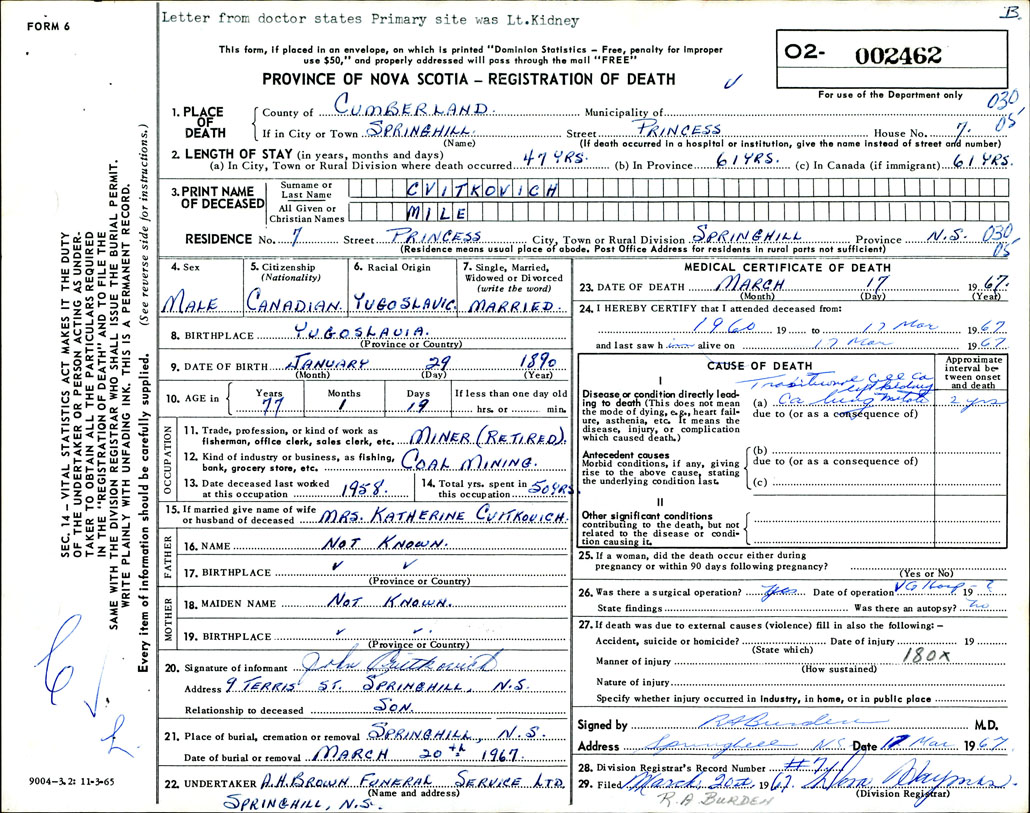 FORM 6
Letter from doctor states Primary site was Lt.Kidney
B.
This form, if placed in an envelope, on which is printed "Dominion Statistics – Free, penalty for improper
use $50," and properly addressed will pass through the mail "FREE"
PROVINCE OF NOVA SCOTIA – REGISTRATION OF DEATH
O2- 002462
For use of the Department only
030
05
1. PLACE OF DEATH
County of CUMBERLAND. Municipality of
If in City or Town SPRINGHILL. Street PRINCESS House No. 7.
(Name) (If death occurred in a hospital or institution, give the name instead of street and number)
2. LENGTH OF STAY (in years, months and days)
(a) In City, Town or Rural Division where death occurred 47 YRS. (b) In Province 61 YRS. (c) In Canada (if immigrant) 61 YRS.
3. PRINT NAME OF DECEASED
Surname or Last Name CVITKOVICH
All Given or Christian Names MILE
RESIDENCE No. 7 Street PRINCESS City, Town or Rural Division SPRINGHILL Province N.S. 030
05
(Residence means usual place of abode. Post Office Address for residents in rural parts not sufficient)
4. Sex
MALE
5. Citizenship (Nationality)
CANADIAN.
6. Racial Origin
YUGOSLAVIC.
7. Single, Married, Widowed or Divorced (write the word)
MARRIED.
8. BIRTHPLACE YUGOSLAVIA.
(Province or Country)
9. DATE OF BIRTH JANUARY 29 1890
(Month) (Day) (Year)
10. AGE in Years Months Days If less than one day old
77 1 19 hrs. or min.
OCCUPATION
11. Trade, profession, or kind of work as
fisherman, office clerk, sales clerk, etc. MINER (RETIRED).
12. Kind of industry or business, as fishing,
bank, grocery store, etc. COAL MINING.
13. Date deceased last worked
at this occupation 1958.
14. Total yrs. spent in
this occupation 50 YRS
15. If married give name of wife
or husband of deceased MRS. KATHERINE CVITKOVICH.
FATHER
16. NAME NOT KNOWN.
17. BIRTHPLACE ✓ ✓
(Province or Country)
MOTHER
18. MAIDEN NAME NOT KNOWN.
19. BIRTHPLACE ✓ ✓.
(Province or Country)
20. Signature of informant John Cvitkovich
Address 9 TERRIS ST. SPRINGHILL, N.S.
Relationship to deceased SON.
21. Place of burial, cremation or removal SPRINGHILL, N.S.
Date of burial or removal MARCH 20th 1967.
22. UNDERTAKER A.H. BROWN FUNERAL SERVICE LTD.
(Name and address)
SPRINGHILL, N.S.
MEDICAL CERTIFICATE OF DEATH
23. DATE OF DEATH MARCH 17 1967.
(Month) (Day) (Year)
24. I HEREBY CERTIFY that I attended deceased from:
1960 19 to 17 Mar 1967
and last saw him alive on 17 Mar 1967.
CAUSE OF DEATH
Approximate interval between onset and death
I
Disease or condition directly leading to death (This does not mean
the mode of dying, e.g., heart failure, asthenia, etc. It means the
disease, injury, or complication
which caused death.)
(a) Ca lung 2 yrs
due to (or as a consequence of)
Antecedent causes
Morbid conditions, if any, giving
rise to the above cause, stating
the underlying condition last.
(b)
due to (or as a consequence of)
(c)
II
Other significant conditions
contributing to the death, but not
related to the disease or condition causing it.
25. If a woman, did the death occur either during
pregnancy or within 90 days following pregnancy?
(Yes or No)
26. Was there a surgical operation? Yes Date of operation VG Hosp - ? 19
State findings Was there an autopsy? no
27. If death was due to external causes (violence) fill in also the following: –
Accident, suicide or homicide? Date of injury 19
(State which)
180X
Manner of injury
(How sustained)
Nature of injury
Specify whether injury occurred in industry, in home, or in public place
Signed by RABurden M.D.
Address Springhill NS Date 17 Mar 1967
28. Division Registrar's Record Number
29. Filed March, 20th 1967.
(Division Registrar)
R.A BURDEN
SEC. 14 – VITAL STATISTICS ACT MAKES IT THE DUTY
OF THE UNDERTAKER OR PERSON ACTING AS UNDER-
TAKER TO OBTAIN ALL THE PARTICULARS REQUIRED
IN THE "REGISTRATION OF DEATH" AND TO FILE THE
SAME WITH THE DIVISION REGISTRAR WHO SHALL ISSUE THE BURIAL PERMIT.
WRITE PLAINLY WITH UNFADING INK. THIS IS A PERMANENT RECORD.
Every item of information should be carefully supplied. (See reverse side for instructions.)
9004-3.2: 11-3-65